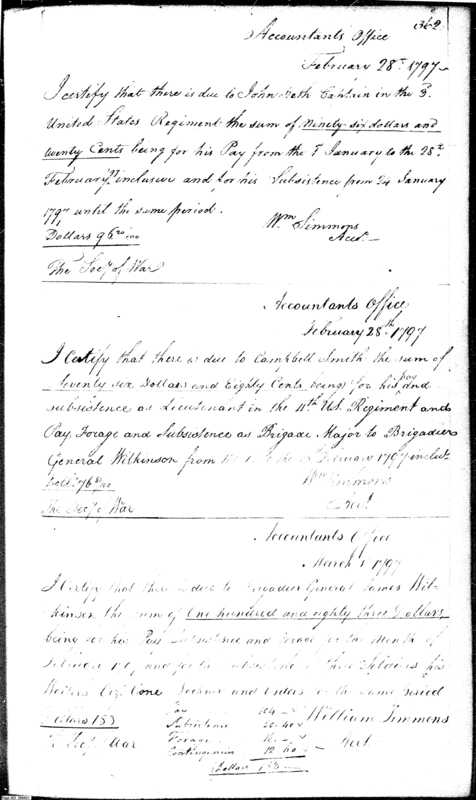 362
Accountants Office
February 28th 1797
I certify that there is due to John Heth Captain in the 3.
United States Regiment the sum of Ninety six dollars and
twenty Cents being for his Pay from the 1 January to the 28th
February inclusive and for his Subsistence from 24 January
1797 until the same period.
Wm Simmons
Dollars 96 20/100
Acct.
The Secy of War
Accountants Office
February 28th 1797
I Certify that there is due to Campbell Smith the sum of
Seventy six Dollars and Eighty Cents being for his pay and
subsistence as Lieutenant in the 4th U.S. Regiment and
Pay, Forage and Subsistence as Brigade Major to Brigadier
General Wilkinson from the February 1797 inclus.
Dolls. 76 80/100
Wm Simmons
The Secy of War
Acct.
Accountants Office
March 1 1797
I Certify that there is due to Brigadier General James Wil-
kinson the sum of One hundred and eighty three Dollars,
being for his Pay Subsistence and Forage for the Month of
and for the Subsistence of three Soldiers his
Waiters and for the same Period
Dollars 183
Pay 104
William Simmons
Subsistence
Forage 16
Acct.
The Secy of War
Contingencies 12
Dollars 183